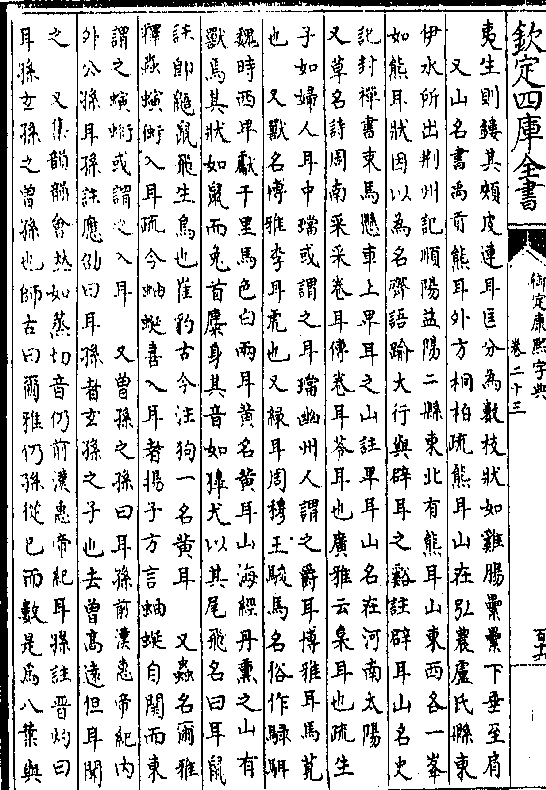 欽定四庫全書
御定康熙字典 卷二十三
夷生則鏤其頰皮連耳匡分為數枝狀如雞腸纍纍下垂至肩
又山名書禹貢熊耳外方桐柏疏熊耳山在弘農盧氏縣東
伊水所出荆州記順陽益陽二縣東北有熊耳山東西各一峯
如熊耳狀因以為名齊語踰大行與辟耳之谿註辟耳山名史
記封禪書束馬懸車上卑耳之山註卑耳山名在河南太陽
又草名詩周南采采卷耳傳卷耳苓耳也廣雅云枲耳也疏生
子如婦人耳中璫或謂之耳璫幽州人謂之爵耳博雅耳馬莧
也 又獸名博雅李耳虎也又緑耳周穆王駿馬名俗作騄駬
魏時西卑獻千里馬色白兩耳黃名黃耳山海經丹熏之山有
獸焉其狀如鼠而兔首麋身其音如獋犬以其尾飛名曰耳鼠
註卽鼯鼠飛生鳥也崔豹古今注狗一名黃耳 又蟲名爾雅
釋蟲螾衝入耳疏今蚰蜒喜入耳者揚子方言蚰蜒自關而東
謂之螾𧊔或謂之入耳 又曾孫之孫曰耳孫前漢惠帝紀内
外公孫耳孫註應劭曰耳孫者玄孫之子也去曾高遠但耳聞
之 又集韻韻會𠀤如蒸切音仍前漢惠帝紀耳孫註晉灼曰
耳孫玄孫之曾孫也師古曰爾雅仍孫從己而數是為八葉與